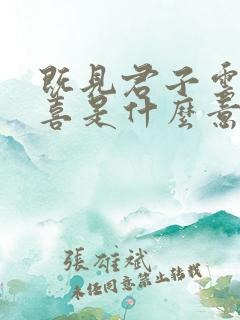 既見君子云
喜是什麼意
張雄斌
未经同意禁止转载